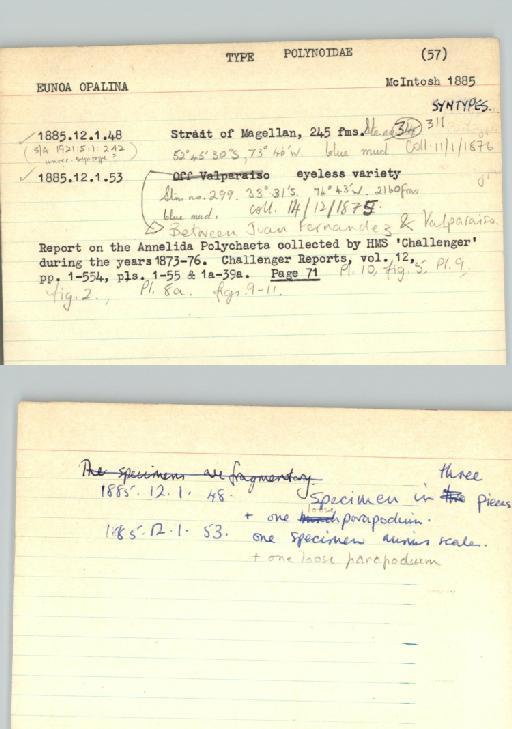 TYPE POLYNOIDAE (57)
EUNOA OPALINA McIntosh 1885
SYNTYPES.
1885.12.1.48 Strait of Magellan, 245 fms. Stn no. 311
(S/A 1921:5:1:242 52°45'30"S, 73°46'W blue mud Coll. 11/1/1876
1885.12.1.53 Off Valparaiso eyeless variety
Stn no. 299. 33°31'S. 74°43'W. 2160fms
blue mud. coll. 14/12/1875
Between Juan Fernandez & Valparaiso.
Report on the Annelida Polychaeta collected by HMS 'Challenger'
during the years 1873-76. Challenger Reports, vol. 12,
pp. 1-554, pls. 1-55 & 1a-39a. Page 71 Pl. 10, fig. 5. Pl. 9,
fig. 2., Pl. 8a. figs. 9-11.
The specimens are fragmentary.
1885. 12. 1. 48. Specimen in three pieces
+ one loose parapodium.
1885. 12. 1. 53. one specimen minus scales.
+ one loose parapodium